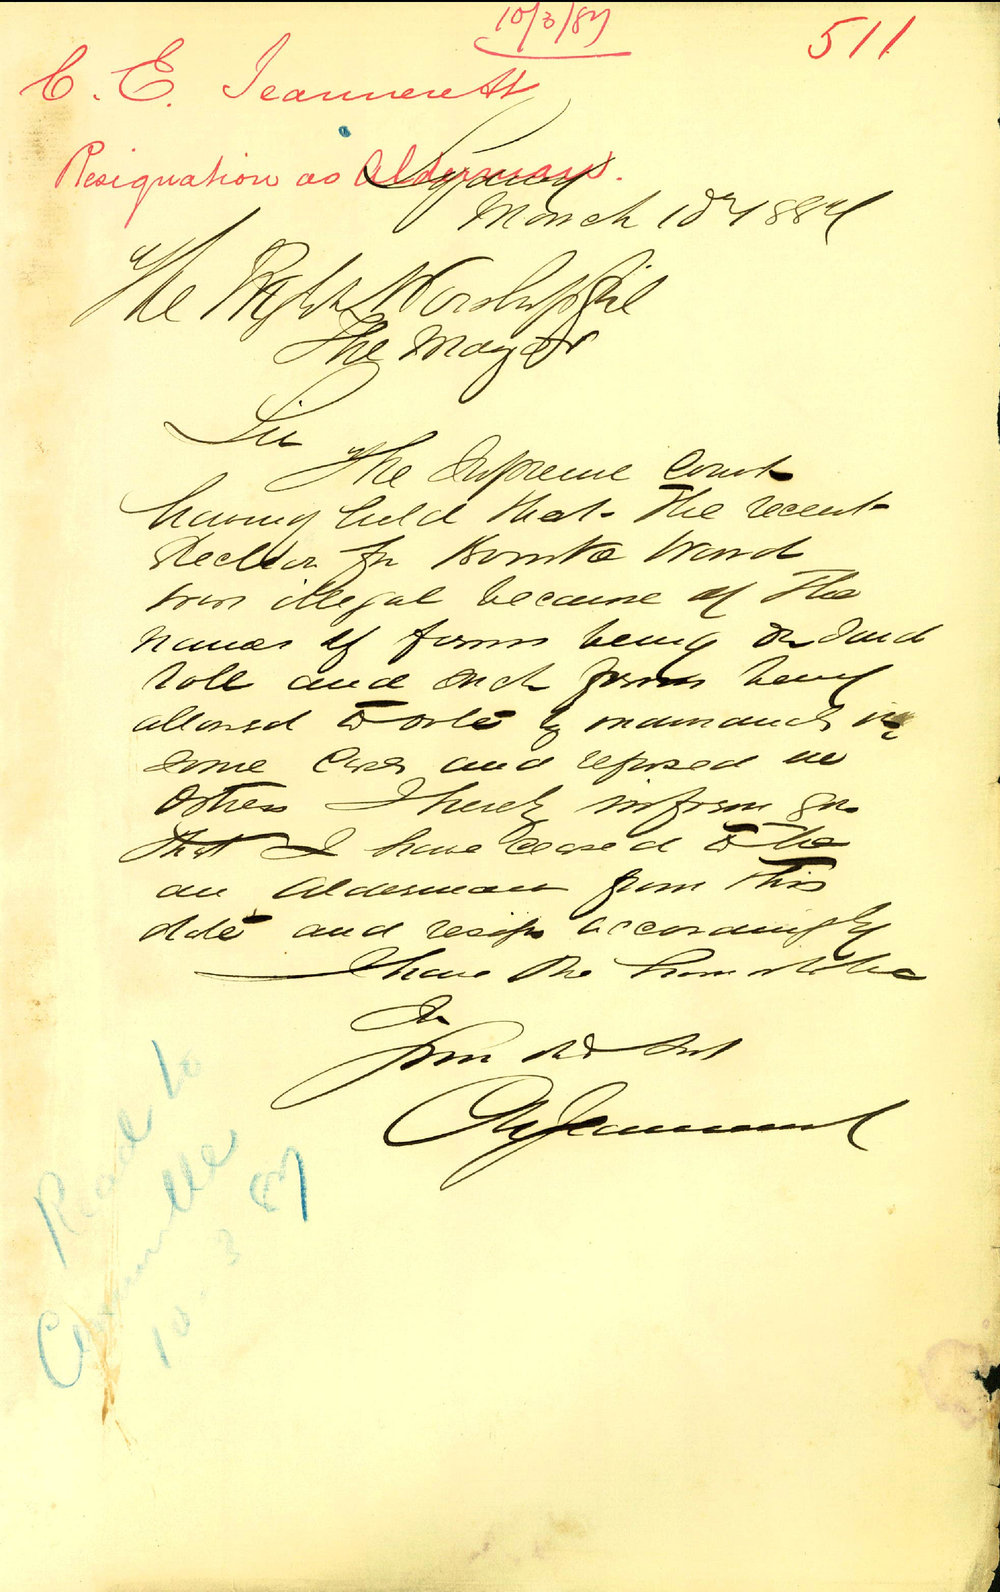 10/3/87
511
C. E. Jeannerett
Resignation as Alderman.
Sydney
March 10th 1887
The Right Worshipful
The Mayor
Sir
The Supreme Court
having held that the recent
Election for Bourke Ward
was illegal because of the
names of firms being on said
roll and such firms being
allowed to vote by in
some cases and refused in
others I hereby inform you
that I have ceased to be
an Alderman from this
date and resign accordingly
I have the honor to be
Sir
Your obt Svt
CE Jeanneret
Read to
Committee
10 3 87